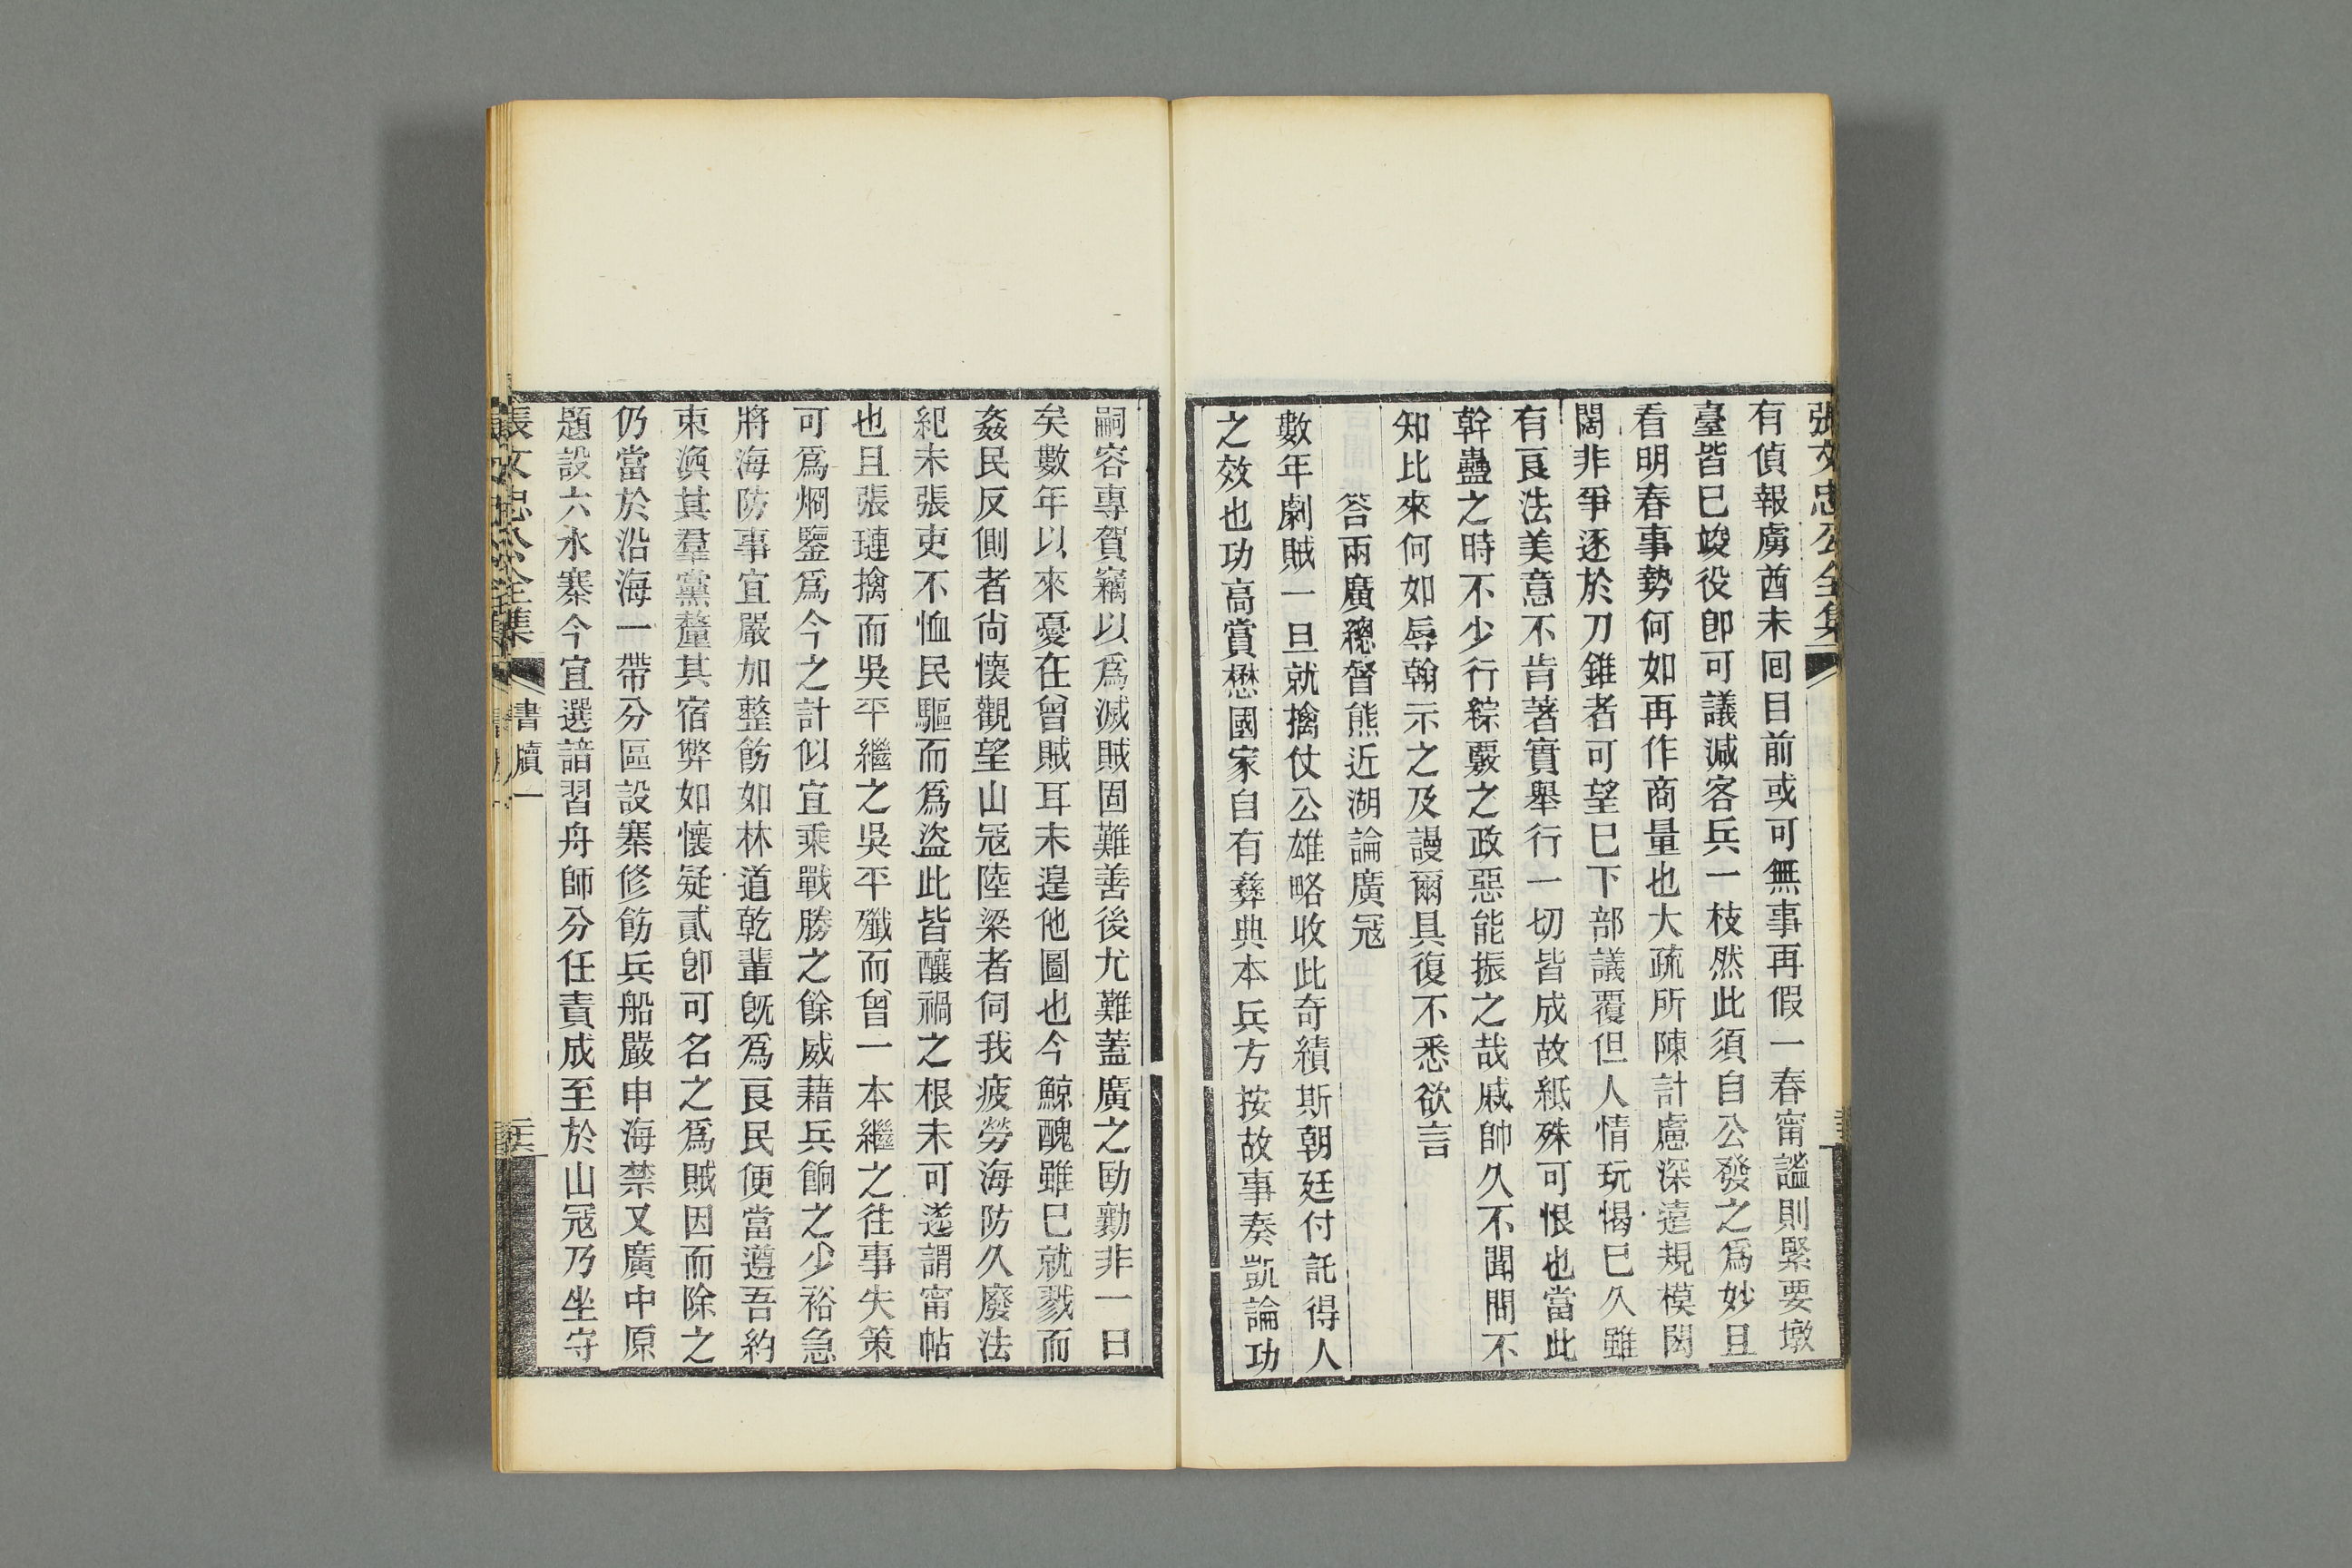 張文忠公全集
有偵報虜酋未回目前或可無事再假一春甯謐則緊要墩
臺皆已竣役卽可議減客兵一枝然此須自公發之爲妙且
看明春事勢何如再作商量也大疏所陳計慮深遠規模閎
闊非爭逐於刀錐者可望已下部議覆但人情玩愒已久雖
有良法美意不肯著實舉行一切皆成故紙殊可恨也當此
幹蠱之時不少行綜覈之政惡能振之哉戚帥久不聞問不
知比來何如辱翰示之及謾爾具復不悉欲言
答兩廣總督熊近湖論廣冦
數年劇賊一旦就擒仗公雄略收此奇績斯朝廷付託得人
之效也功高賞懋國家自有彝典本兵方按故事奏凱論功
嗣容專賀竊以爲滅賊固難善後尤難蓋廣之劻勷非一日
矣數年以來憂在曾賊耳未遑他圖也今鯨醜雖已就戮而
姦民反側者尙懷觀望山冦陸梁者伺我疲勞海防久廢法
紀未張吏不恤民驅而爲盜此皆釀禍之根未可遂謂甯帖
也且張璉擒而吳平繼之吳平殲而曾一本繼之往事失策
可爲炯鑒爲今之計似宜乘戰勝之餘威藉兵餉之少裕急
將海防事宜嚴加整飭如林道乾輩旣爲良民便當遵吾約
束渙其羣黨釐其宿弊如懷疑貳卽可名之爲賊因而除之
仍當於沿海一帶分區設寨修飭兵船嚴申海禁又廣中原
題設六水寨今宜選諳習舟師分任責成至於山冦乃坐守
張文忠公全集 書牘一